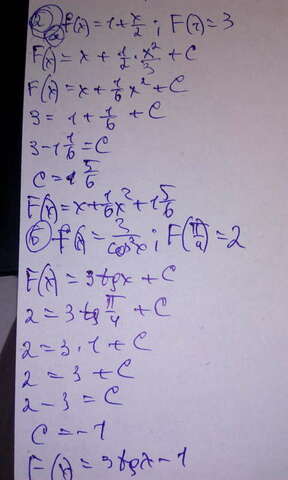 2) a) f(x) = 1 + x/2 ; F(1) = 3
F(x) = x + 1/2 · x²/3 + C
F(x) = x + 1/6 x² + C
3 = 1 + 1/6 + C
3 - 1 1/6 = C
C = 1 5/6
F(x) = x + 1/6 x² + 1 5/6
б) f(x) = 3/cos²x ; F(π/4) = 2
F(x) = 3tgx + C
2 = 3 tg π/4 + C
2 = 3 · 1 + C
2 = 3 + C
2 - 3 = C
C = -1
F(x) = 3tgx - 1